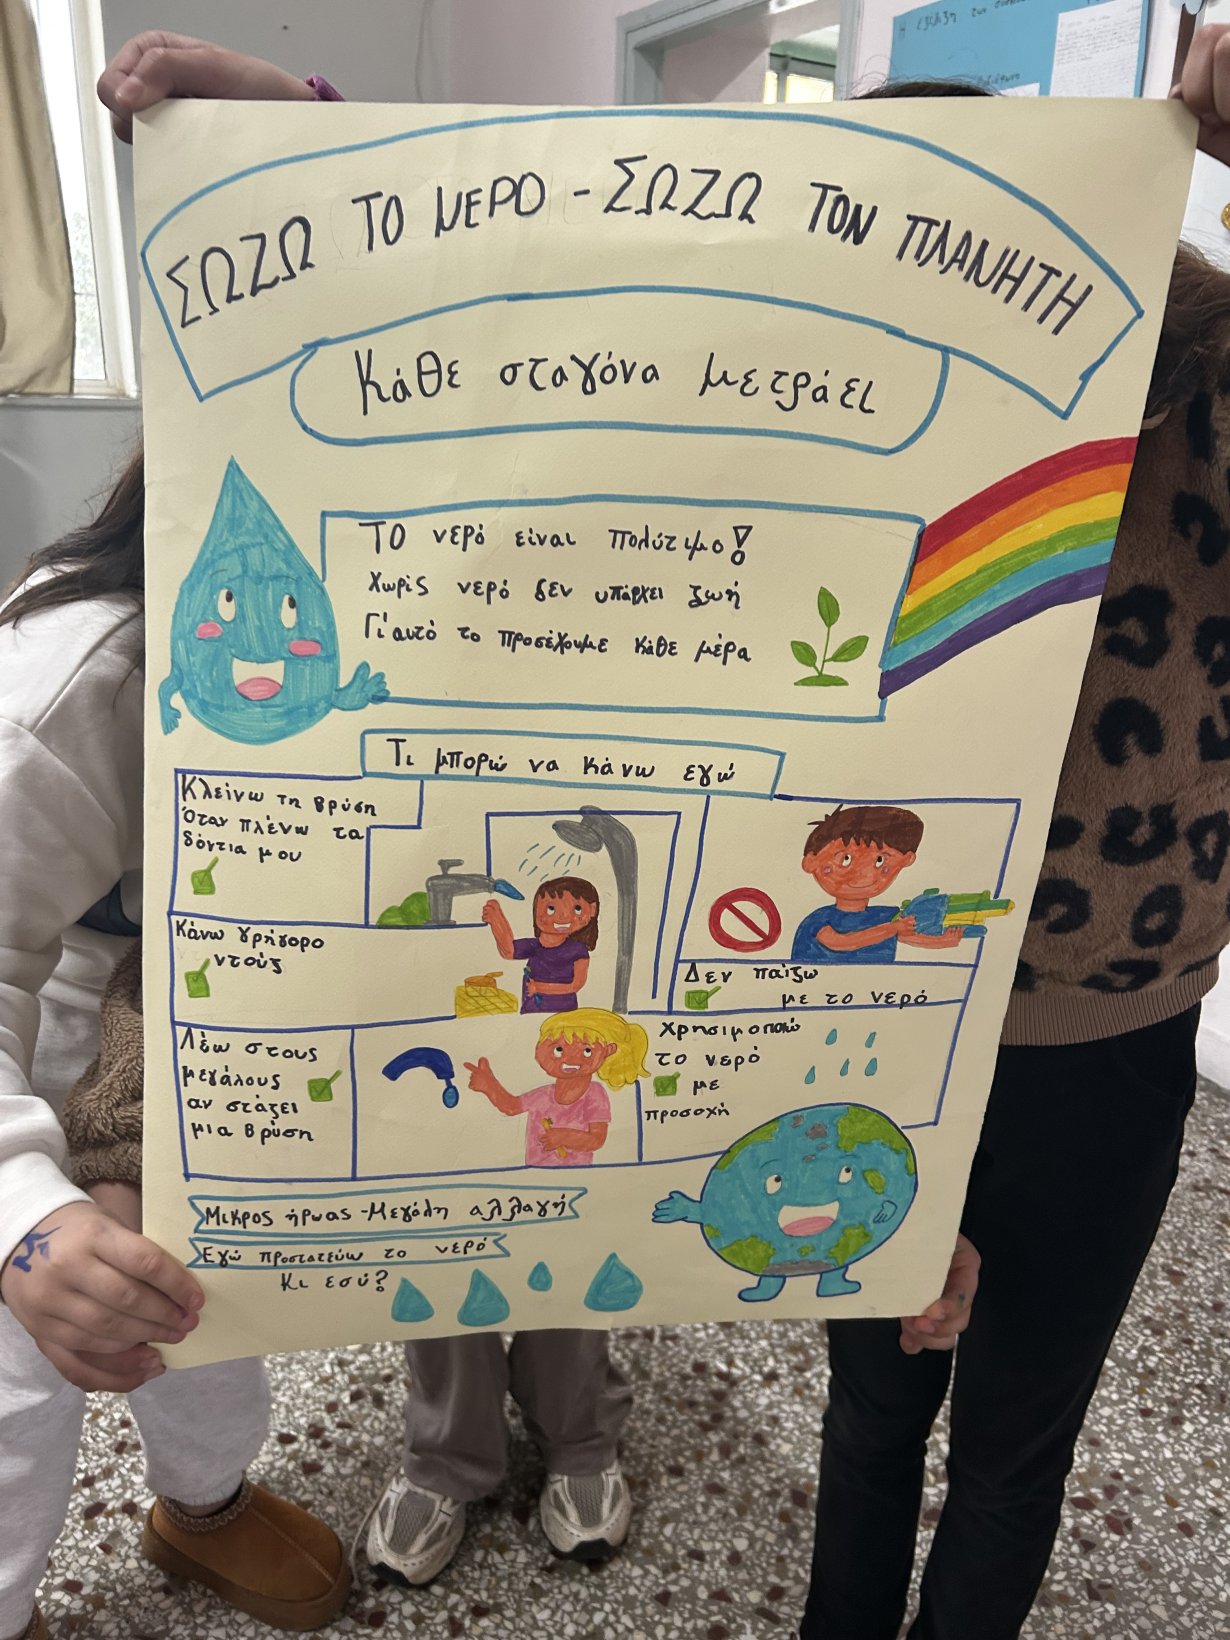 Η εξέλιξη των
ΣΩΖΩ ΤΟ ΝΕΡΟ - ΣΩΖΩ ΤΟΝ ΠΛΑΝΗΤΗ
Κάθε σταγόνα μετράει
ΤΟ νερό είναι πολύτιμο!
Χωρίς νερό δεν υπάρχει ζωή
Γι'αυτό το προσέχουμε κάθε μέρα
Τι μπορώ να κάνω εγώ
Κλείνω τη βρύση
Όταν πλένω τα
δόντια μου
Κάνω γρήγορο
ντούζ
Δεν παίζω
με το νερό
Λέω στους
μεγάλους
αν στάζει
μια βρύση
Χρησιμοποιώ
το νερό
με
προσοχή
Μικρος ήρωας - Μεγάλη αλλαγή
Εγώ προστατεύω το νερό
Κι εσύ?